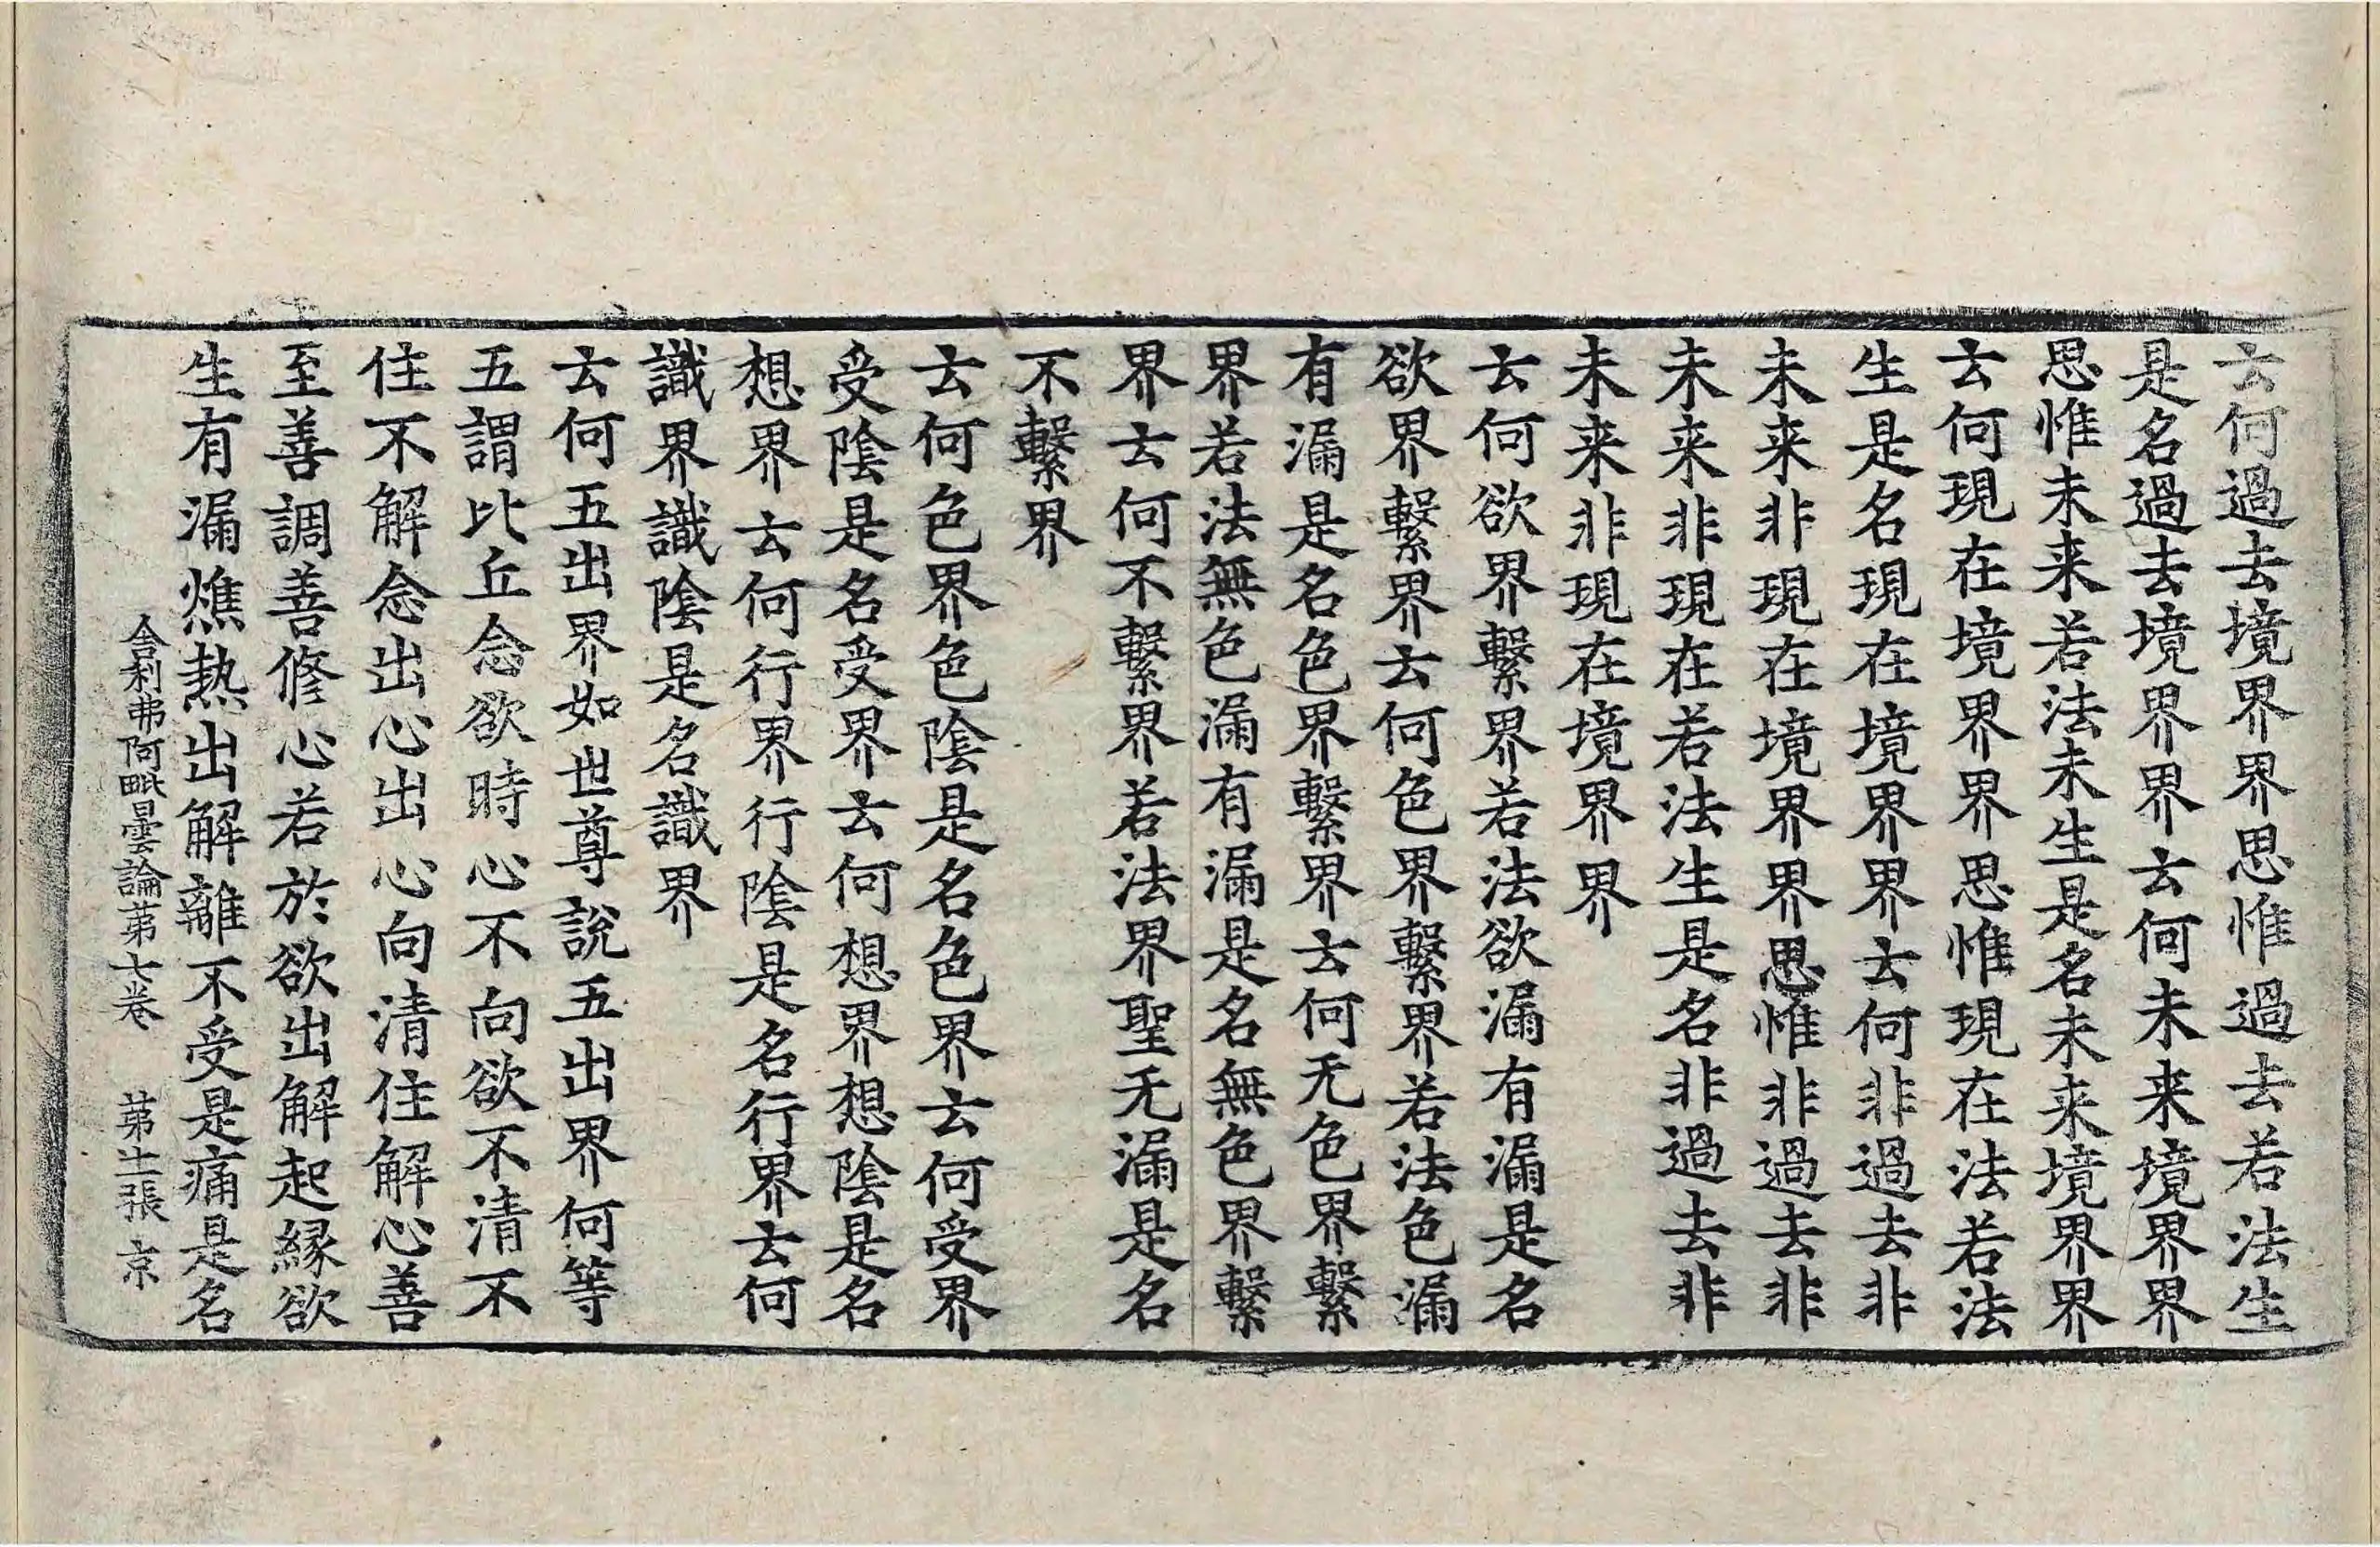 云何過去境界界思惟過去若法生
是名過去境界界云何未来境界界
思惟未来若法未生是名未来境界界
云何現在境界界思惟現在法若法
生是名現在境界界云何非過去非
未来非現在境界界思惟非過去非
未来非現在若法生是名非過去非
未来非現在境界界
云何欲界繫界若法欲漏有漏是名
欲界繫界云何色界繫界若法色漏
有漏是名色界繫界云何无色界繫
界若法無色漏有漏是名無色界繫
界云何不繫界若法界聖无漏是名
不繫界
云何色界色陰是名色界云何受界
受陰是名受界云何想界想陰是名
想界云何行界行陰是名行界云何
識界識陰是名識界
云何五出界如世尊說五出界何等
五謂比丘念欲時心不向欲不清不
住不解念出心出心向清住解心善
至善調善修心若於欲出解起緣欲
生有漏燋热出解離不受是痛是名
舍利弗阿毗曇論苐七卷 苐十二張 京